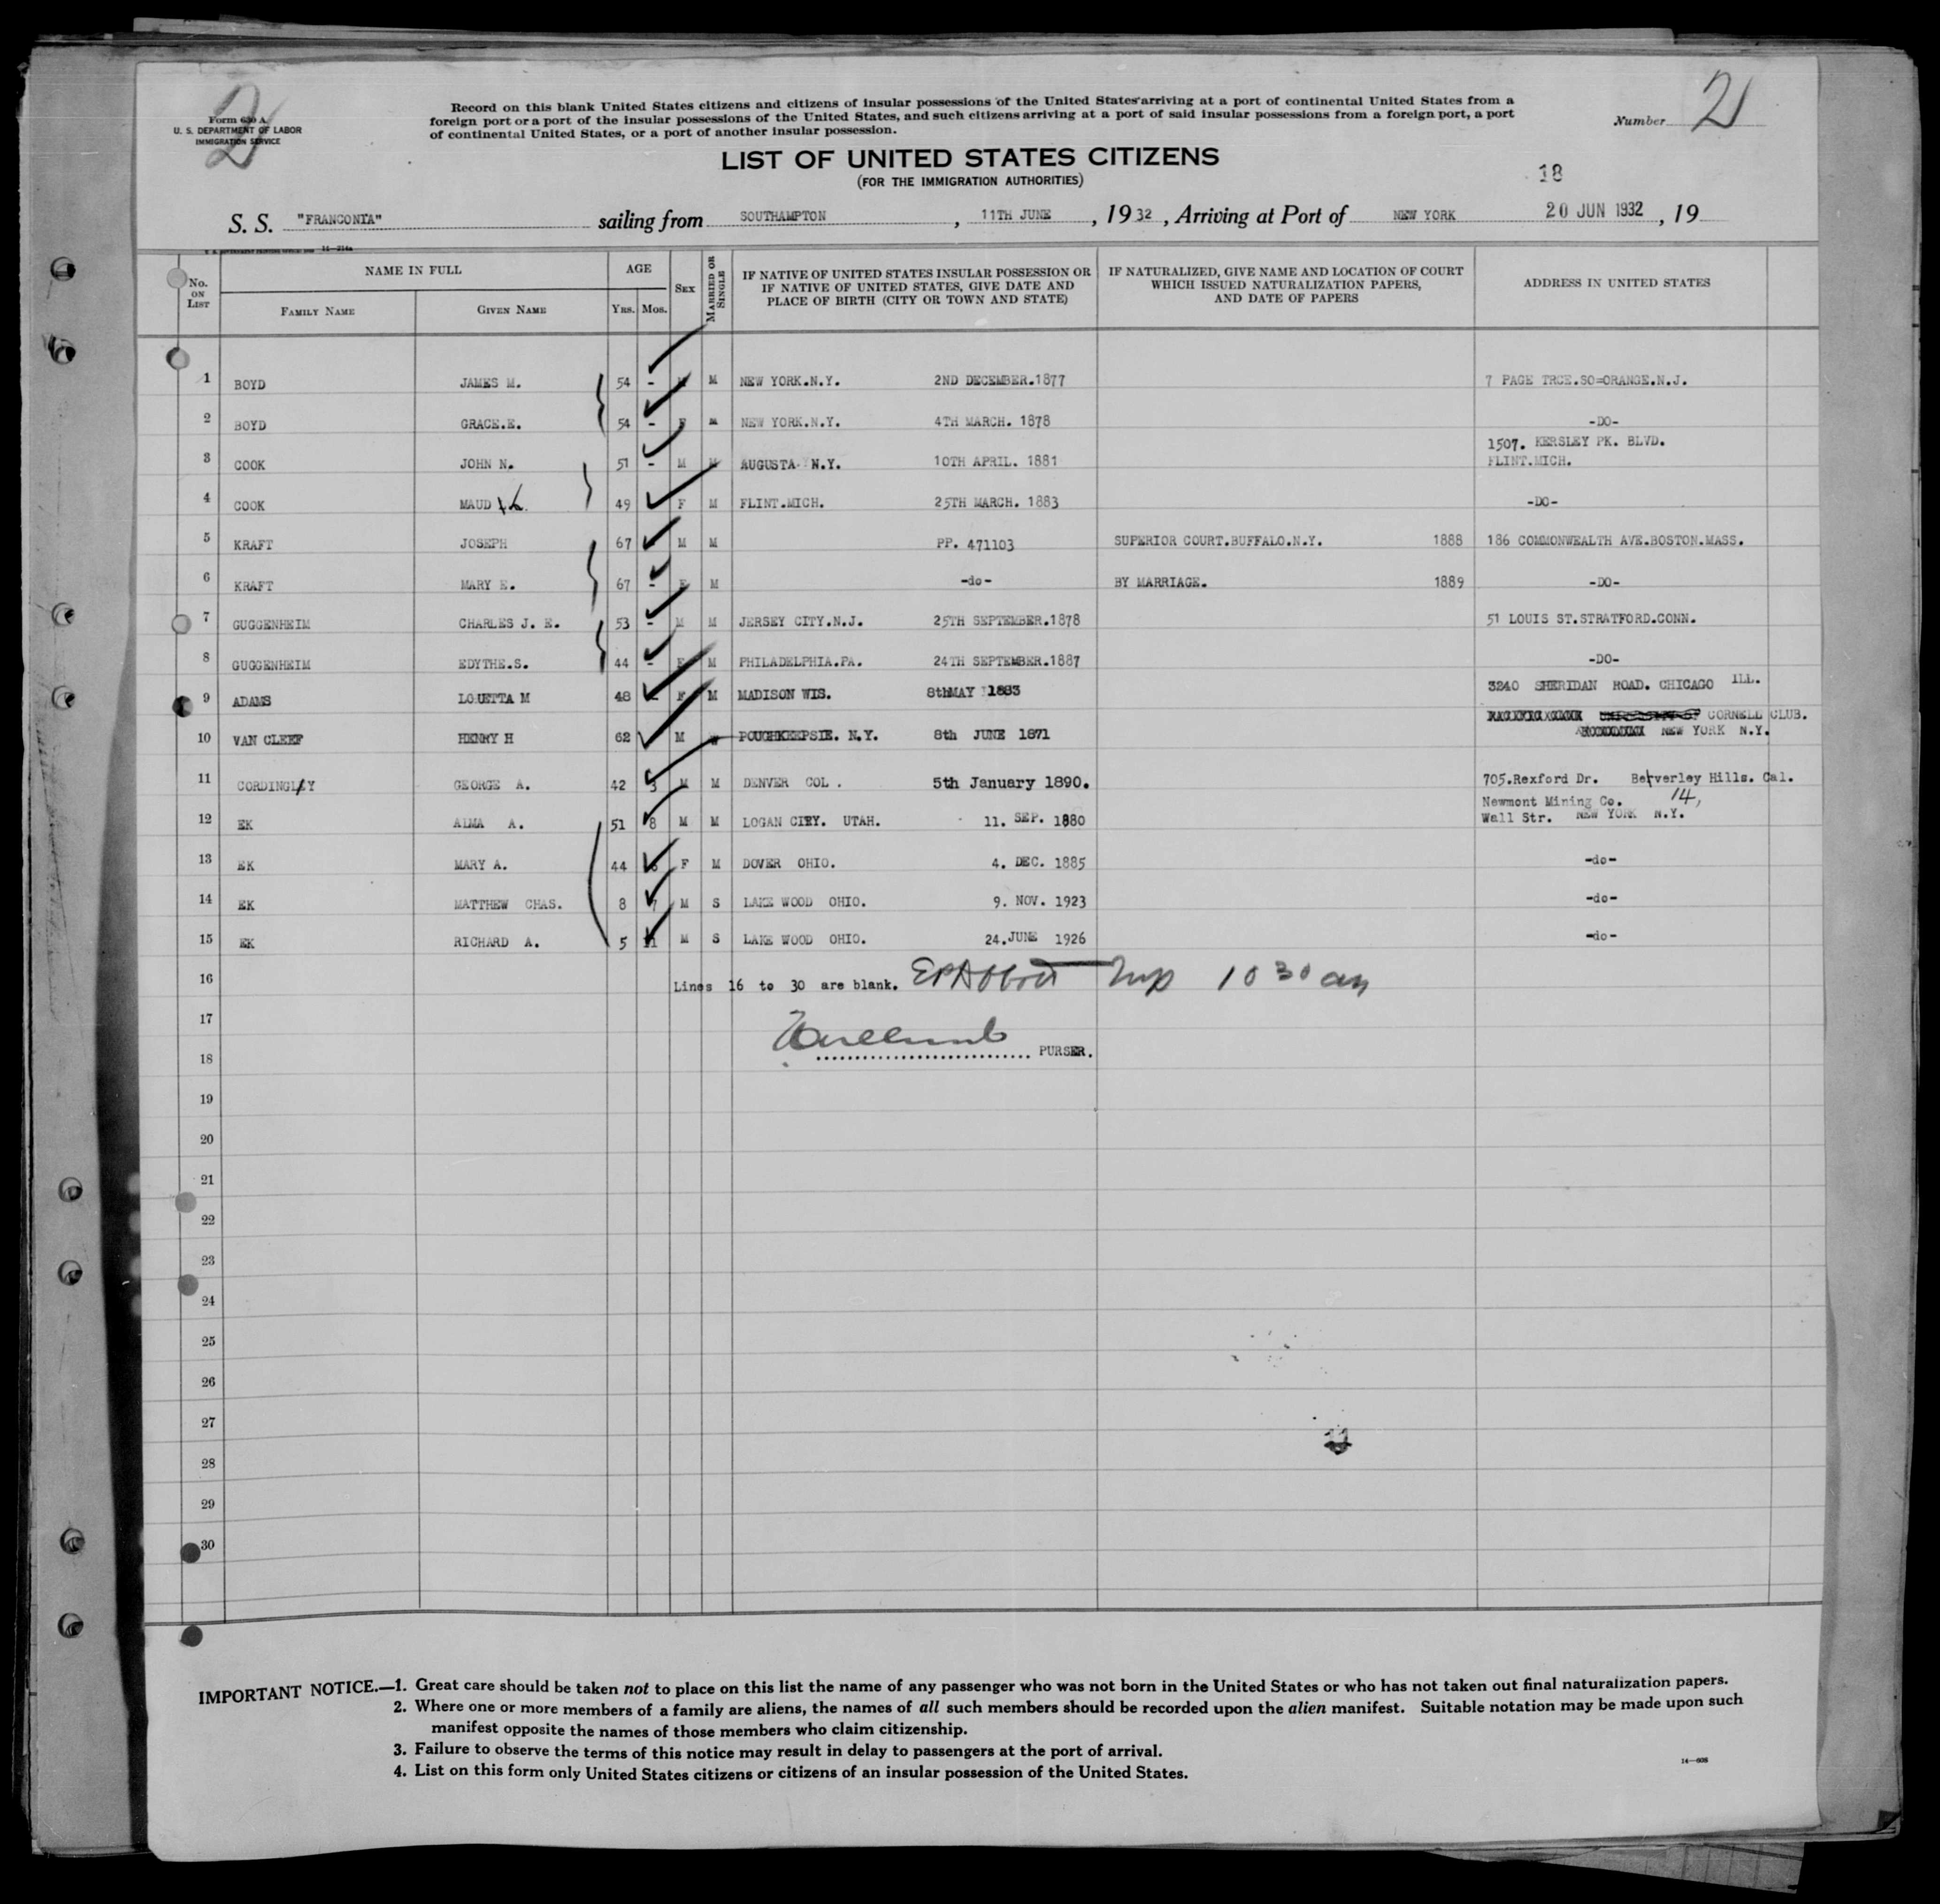 Form 630 A
U. S. DEPARTMENT OF LABOR
IMMIGRATION SERVICE
2
Record on this blank United States citizens and citizens of insular possessions of the United States arriving at a port of continental United States from a
foreign port or a port of the insular possessions of the United States, and such citizens arriving at a port of said insular possessions from a foreign port, a port
of continental United States, or a port of another insular possession.
Number 2
LIST OF UNITED STATES CITIZENS
(FOR THE IMMIGRATION AUTHORITIES)
18
S. S. "FRANCONIA" sailing from SOUTHAMPTON, 11TH JUNE, 1932, Arriving at Port of NEW YORK 20 JUN 1932, 19
No. ON LIST
NAME IN FULL
FAMILY NAME
GIVEN NAME
AGE
YRS. MOS.
SEX
MARRIED OR SINGLE
IF NATIVE OF UNITED STATES INSULAR POSSESSION OR
IF NATIVE OF UNITED STATES, GIVE DATE AND
PLACE OF BIRTH (CITY OR TOWN AND STATE)
IF NATURALIZED, GIVE NAME AND LOCATION OF COURT
WHICH ISSUED NATURALIZATION PAPERS,
AND DATE OF PAPERS
ADDRESS IN UNITED STATES
1 BOYD JAMES M. 54 - M M NEW YORK.N.Y. 2ND DECEMBER.1877 7 PAGE TRCE.SO=ORANGE.N.J.
2 BOYD GRACE.E. 54 - F M NEW YORK.N.Y. 4TH MARCH. 1878 -DO-
3 COOK JOHN N. 51 - M M AUGUSTA N.Y. 10TH APRIL. 1881 1507. KERSLEY PK. BLVD.
FLINT.MICH.
4 COOK MAUD 49 F M FLINT.MICH. 25TH MARCH. 1883 -DO-
5 KRAFT JOSEPH 67 - M M PP. 471103 SUPERIOR COURT.BUFFALO.N.Y. 1888 186 COMMONWEALTH AVE.BOSTON.MASS.
6 KRAFT MARY E. 67 - F M -do- BY MARRIAGE. 1889 -DO-
7 GUGGENHEIM CHARLES J. E. 53 - M M JERSEY CITY.N.J. 25TH SEPTEMBER.1878 51 LOUIS ST.STRATFORD.CONN.
8 GUGGENHEIM EDYTHE.S. 44 - F M PHILADELPHIA.PA. 24TH SEPTEMBER.1887 -DO-
9 ADAMS LOUETTA M 48 - F M MADISON WIS. 8thMAY 1883 3240 SHERIDAN ROAD. CHICAGO ILL.
10 VAN CLEEF HENRY H 62 M POUGHKEEPSIE. N.Y. 8th JUNE 1871 CORNELL CLUB.
NEW YORK N.Y.
11 CORDINGLY GEORGE A. 42 3 M M DENVER COL . 5th January 1890. 705.Rexford Dr. Beverley Hills. Cal.
12 EK ALMA A. 51 8 M M LOGAN CITY. UTAH. 11. SEP. 1880 Newmont Mining Co. 14,
Wall Str. NEW YORK N.Y.
13 EK MARY A. 44 6 F M DOVER OHIO. 4. DEC. 1885 -do-
14 EK MATTHEW CHAS. 8 7 M S LAKE WOOD OHIO. 9. NOV. 1923 -do-
15 EK RICHARD A. 5 11 M S LAKE WOOD OHIO. 24.JUNE 1926 -do-
16 Lines 16 to 30 are blank. 10 30 am
17
18 PURSER.
19
20
21
22
23
24
25
26
27
28
29
30
IMPORTANT NOTICE.—1. Great care should be taken not to place on this list the name of any passenger who was not born in the United States or who has not taken out final naturalization papers.
2. Where one or more members of a family are aliens, the names of all such members should be recorded upon the alien manifest. Suitable notation may be made upon such
manifest opposite the names of those members who claim citizenship.
3. Failure to observe the terms of this notice may result in delay to passengers at the port of arrival.
4. List on this form only United States citizens or citizens of an insular possession of the United States.